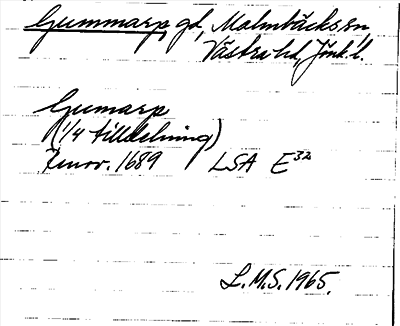 Gummarp, gd, Malmbäcks sn
Västra hd, Jönk. l.
Gumarp
(1/4 tilldelning)
Renov. 1689 LSA E³²
L.M.S. 1965.